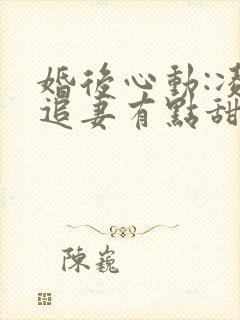 婚後心動:凌
追妻有點甜
陳巍